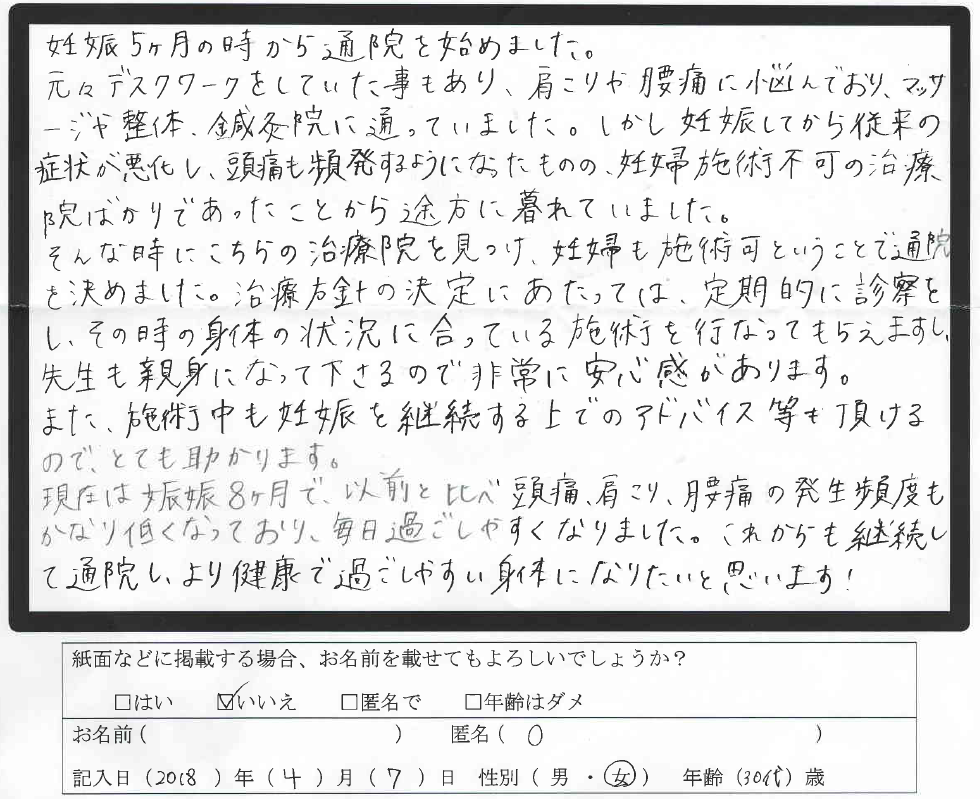 妊娠5ヶ月の時から通院を始めました。
元々デスクワークをしていた事もあり、肩こりや腰痛に悩んでおり、マッサ
ージや整体、鍼灸院に通っていました。しかし妊娠してから従来の
症状が悪化し、頭痛も頻発するようになったものの、妊婦施術不可の治療
院ばかりであったことから途方に暮れていました。
そんな時にこちらの治療院を見つけ、妊婦も施術可ということで通院
を決めました。治療方針の決定にあたっては、定期的に診察を
し、その時の身体の状況に合っている施術を行なってもらえますし、
先生も親身になって下さるので非常に安心感があります。
また、施術中も妊娠を継続する上でのアドバイス等も頂ける
ので、とても助かります。
現在は娠娠8ヶ月で、以前と比べ頭痛、肩こり、腰痛の発生頻度も
かなり低くなっており、毎日過ごしやすくなりました。これからも継続し
て通院し、より健康で過ごしやすい身体になりたいと思います!
紙面などに掲載する場合、お名前を載せてもよろしいでしょうか?
□はい ☑いいえ □匿名で □年齢はダメ
お名前( ) 匿名( O )
記入日(2018)年(4)月(7)日 性別(男・女) 年齢(30代)歳